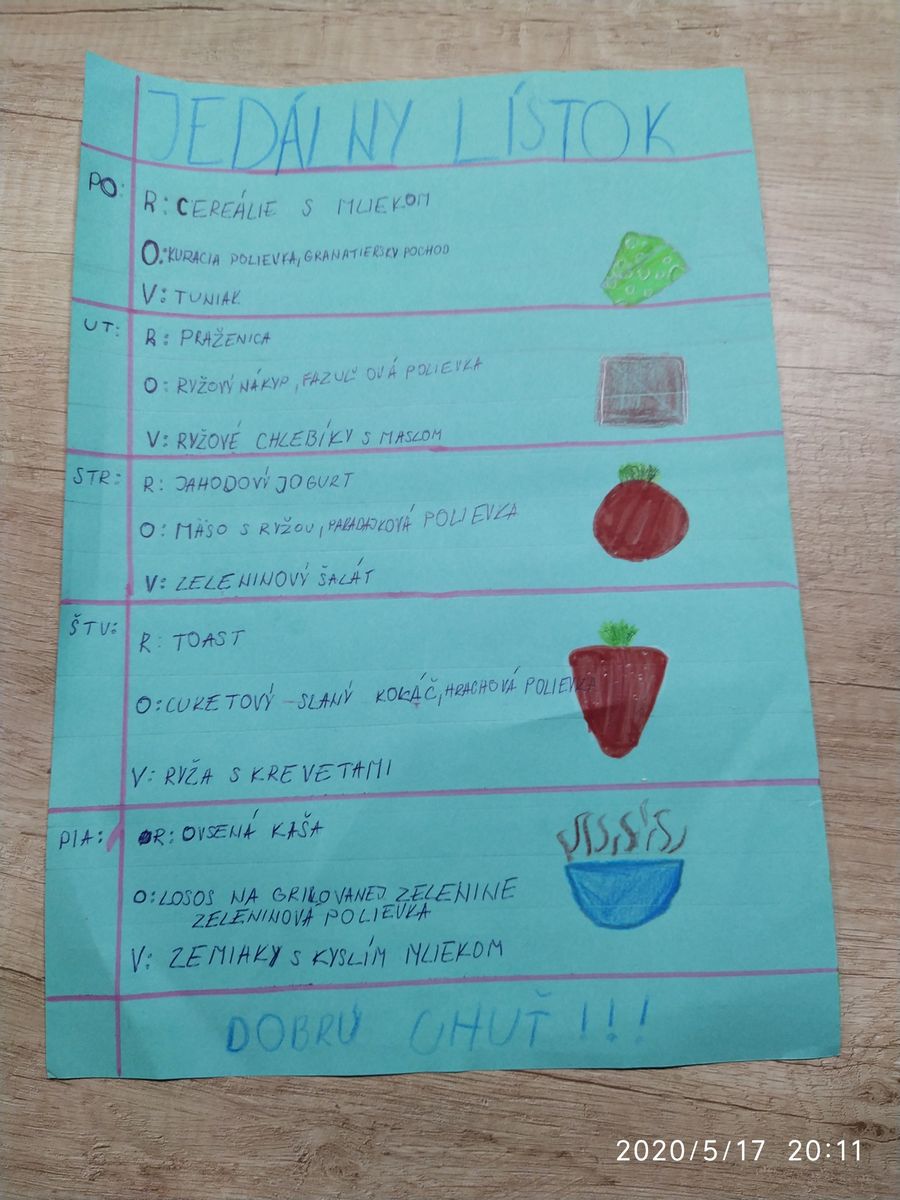 JEDÁLNY LÍSTOK
PO: R: CEREÁLIE S MLIEKOM
O: KURACIA POLIEVKA, GRANATIERSKY POCHOD
V: TUNIAK
UT: R: PRAŽENICA
O: RYŽOVÝ NÁKYP, FAZUĽOVÁ POLIEVKA
V: RYŽOVÉ CHLEBÍKY S MASLOM
STR: R: JAHODOVÝ JOGURT
O: MÄSO S RYŽOU, PARADAJKOVÁ POLIEVKA
V: ZELENINOVÝ ŠALÁT
ŠTV: R: TOAST
O: CUKETOVÝ - SLANÝ KOKÁČ, HRACHOVÁ POLIEVKA
V: RYŽA S KREVETAMI
PIA: R: OVSENÁ KAŠA
O: LOSOS NA GRILOVANEJ ZELENINE
ZELENINOVÁ POLIEVKA
V: ZEMIAKY S KYSLÍM MLIEKOM
DOBRÚ CHUŤ!!!
2020/5/17 20:11